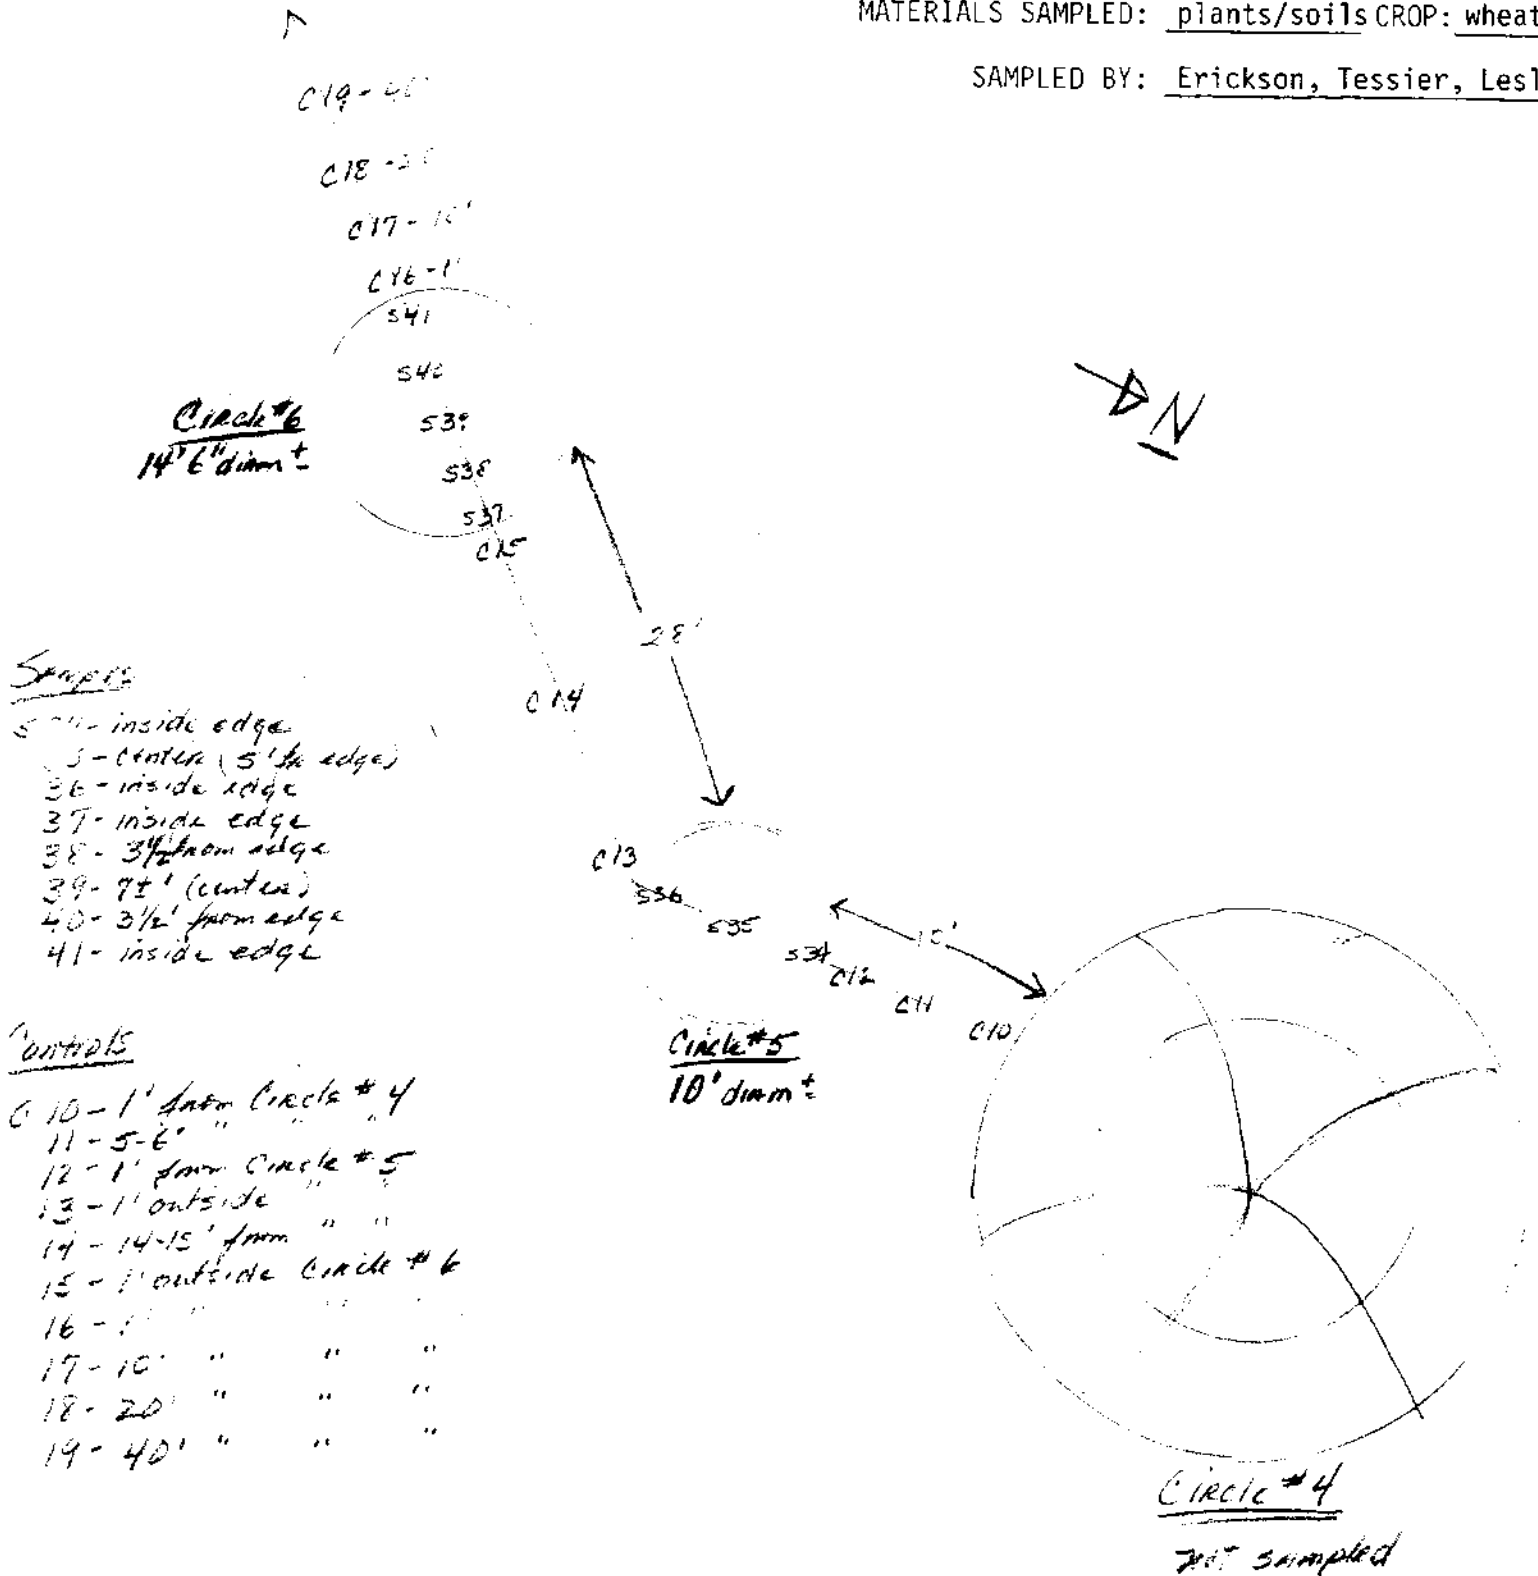 MATERIALS SAMPLED: plants/soils CROP: wheat
SAMPLED BY: Erickson, Tessier, Lesl
C19 - 40'
C18 - 20'
C17 - 10'
C16 - 1'
S41
S40
S39
S38
S37
C15
Circle #6
14'6" diam ±
N
28'
C14
C13
S36
S35
S34
C12
C11
C10
10'
Circle #5
10' diam ±
Samples
S34 - inside edge
- center (5' fr edge)
36 - inside edge
37 - inside edge
38 - 3½' from edge
39 - 7±' (center)
40 - 3½' from edge
41 - inside edge
Controls
C 10 - 1' from Circle #4
11 - 5-6' " " "
12 - 1' from Circle #5
13 - 1' outside " "
14 - 14-15' from " "
15 - 1' outside Circle #6
16 - 1' " " "
17 - 10' " " "
18 - 20' " " "
19 - 40' " " "
Circle #4
not sampled